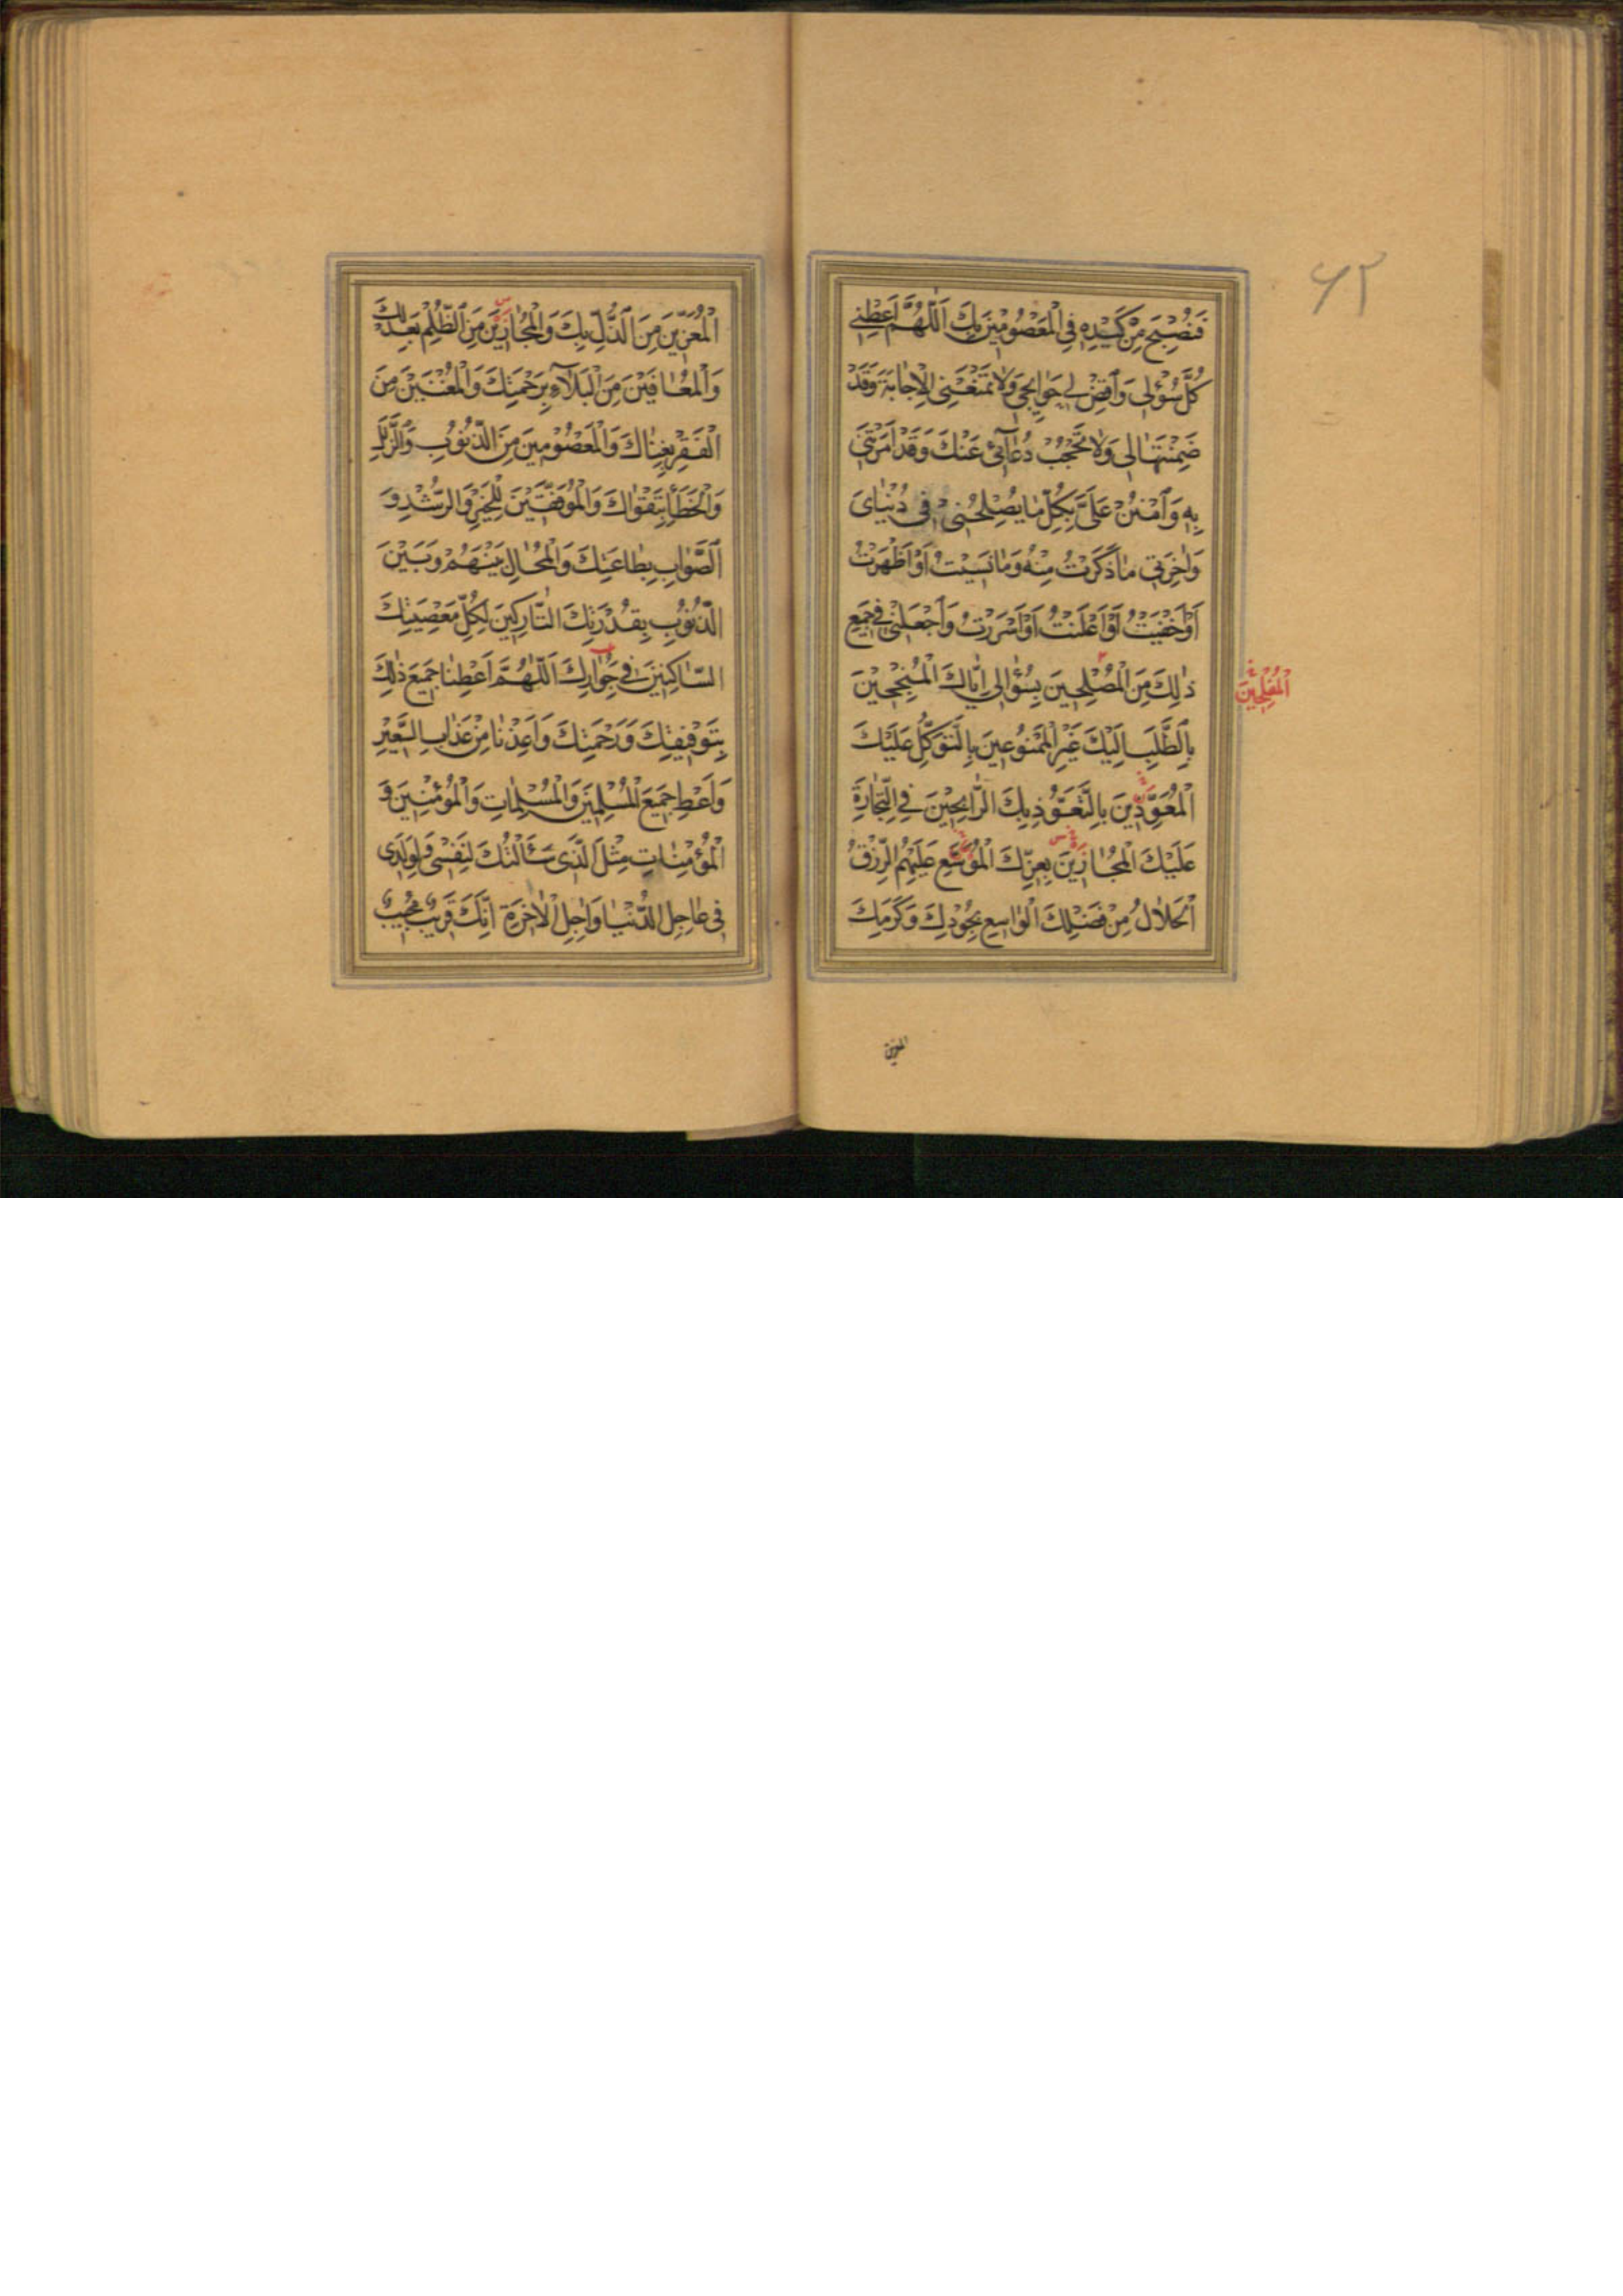 فَنُصْبِحَ مِنْ كَيْدِهِ فِي الْمَعْصُومِينَ بِكَ اَللّٰهُمَّ اَعْطِنِي
كُلَّ سُؤْلِي وَاقْضِ لِي حَوَائِجِي وَلَا تَمْنَعْنِي الْاِجَابَةَ وَقَدْ
ضَمِنْتَهَا لِي وَلَا تَحْجُبْ دُعَآئِي عَنْكَ وَقَدْ اَمَرْتَنِي
بِهِ وَامْنُنْ عَلَيَّ بِكُلِّ مَا يُصْلِحُنِي فِي دُنْيَايَ
وَاٰخِرَتِي مَا ذَكَرْتُ مِنْهُ وَمَا نَسِيتُ اَوْ اَظْهَرْتُ
اَوْ اَخْفَيْتُ اَوْ اَعْلَنْتُ اَوْ اَسْرَرْتُ وَاجْعَلْنِي فِي جَمِيعِ
ذٰلِكَ مِنَ الْمُصْلِحِينَ بِسُؤَالِي اِيَّاكَ الْمُنْجِحِينَ
الْمُفْلِحِينَ
بِالطَّلَبِ اِلَيْكَ غَيْرِ الْمَمْنُوعِينَ بِالتَّوَكُّلِ عَلَيْكَ
الْمُعَوَّذِينَ بِالتَّعَوُّذِ بِكَ الرَّابِحِينَ فِي التِّجَارَةِ
عَلَيْكَ الْمُجَارِينَ بِعِزِّكَ الْمُوَسَّعِ عَلَيْهِمُ الرِّزْقُ
الْحَلَالُ مِنْ فَضْلِكَ الْوَاسِعِ بِجُودِكَ وَكَرَمِكَ
المعزين
۶۲
الْمُعَزِّينَ مِنَ الذُّلِّ بِكَ وَالْمُجَارِينَ مِنَ الظُّلْمِ بِعَدْلِكَ
وَالْمُعَافَيْنَ مِنَ الْبَلَآءِ بِرَحْمَتِكَ وَالْمُغْنَيْنَ مِنَ
الْفَقْرِ بِغِنَاكَ وَالْمَعْصُومِينَ مِنَ الذُّنُوبِ وَالزَّلَلِ
وَالْخَطَأِ بِتَقْوَاكَ وَالْمُوَفَّقِينَ لِلْخَيْرِ وَالرُّشْدِ وَ
الصَّوَابِ بِطَاعَتِكَ وَالْمُحَالِ بَيْنَهُمْ وَبَيْنَ
الذُّنُوبِ بِقُدْرَتِكَ التَّارِكِينَ لِكُلِّ مَعْصِيَتِكَ
السَّاكِنِينَ فِي جِوَارِكَ اَللّٰهُمَّ اَعْطِنَا جَمِيعَ ذٰلِكَ
بِتَوْفِيقِكَ وَرَحْمَتِكَ وَاَعِذْنَا مِنْ عَذَابِ السَّعِيرِ
وَاَعْطِ جَمِيعَ الْمُسْلِمِينَ وَالْمُسْلِمَاتِ وَالْمُؤْمِنِينَ وَ
الْمُؤْمِنَاتِ مِثْلَ الَّذِي سَأَلْتُكَ لِنَفْسِي وَلِوَلَدِي
فِي عَاجِلِ الدُّنْيَا وَاٰجِلِ الْاٰخِرَةِ اِنَّكَ قَرِيبٌ مُجِيبٌ